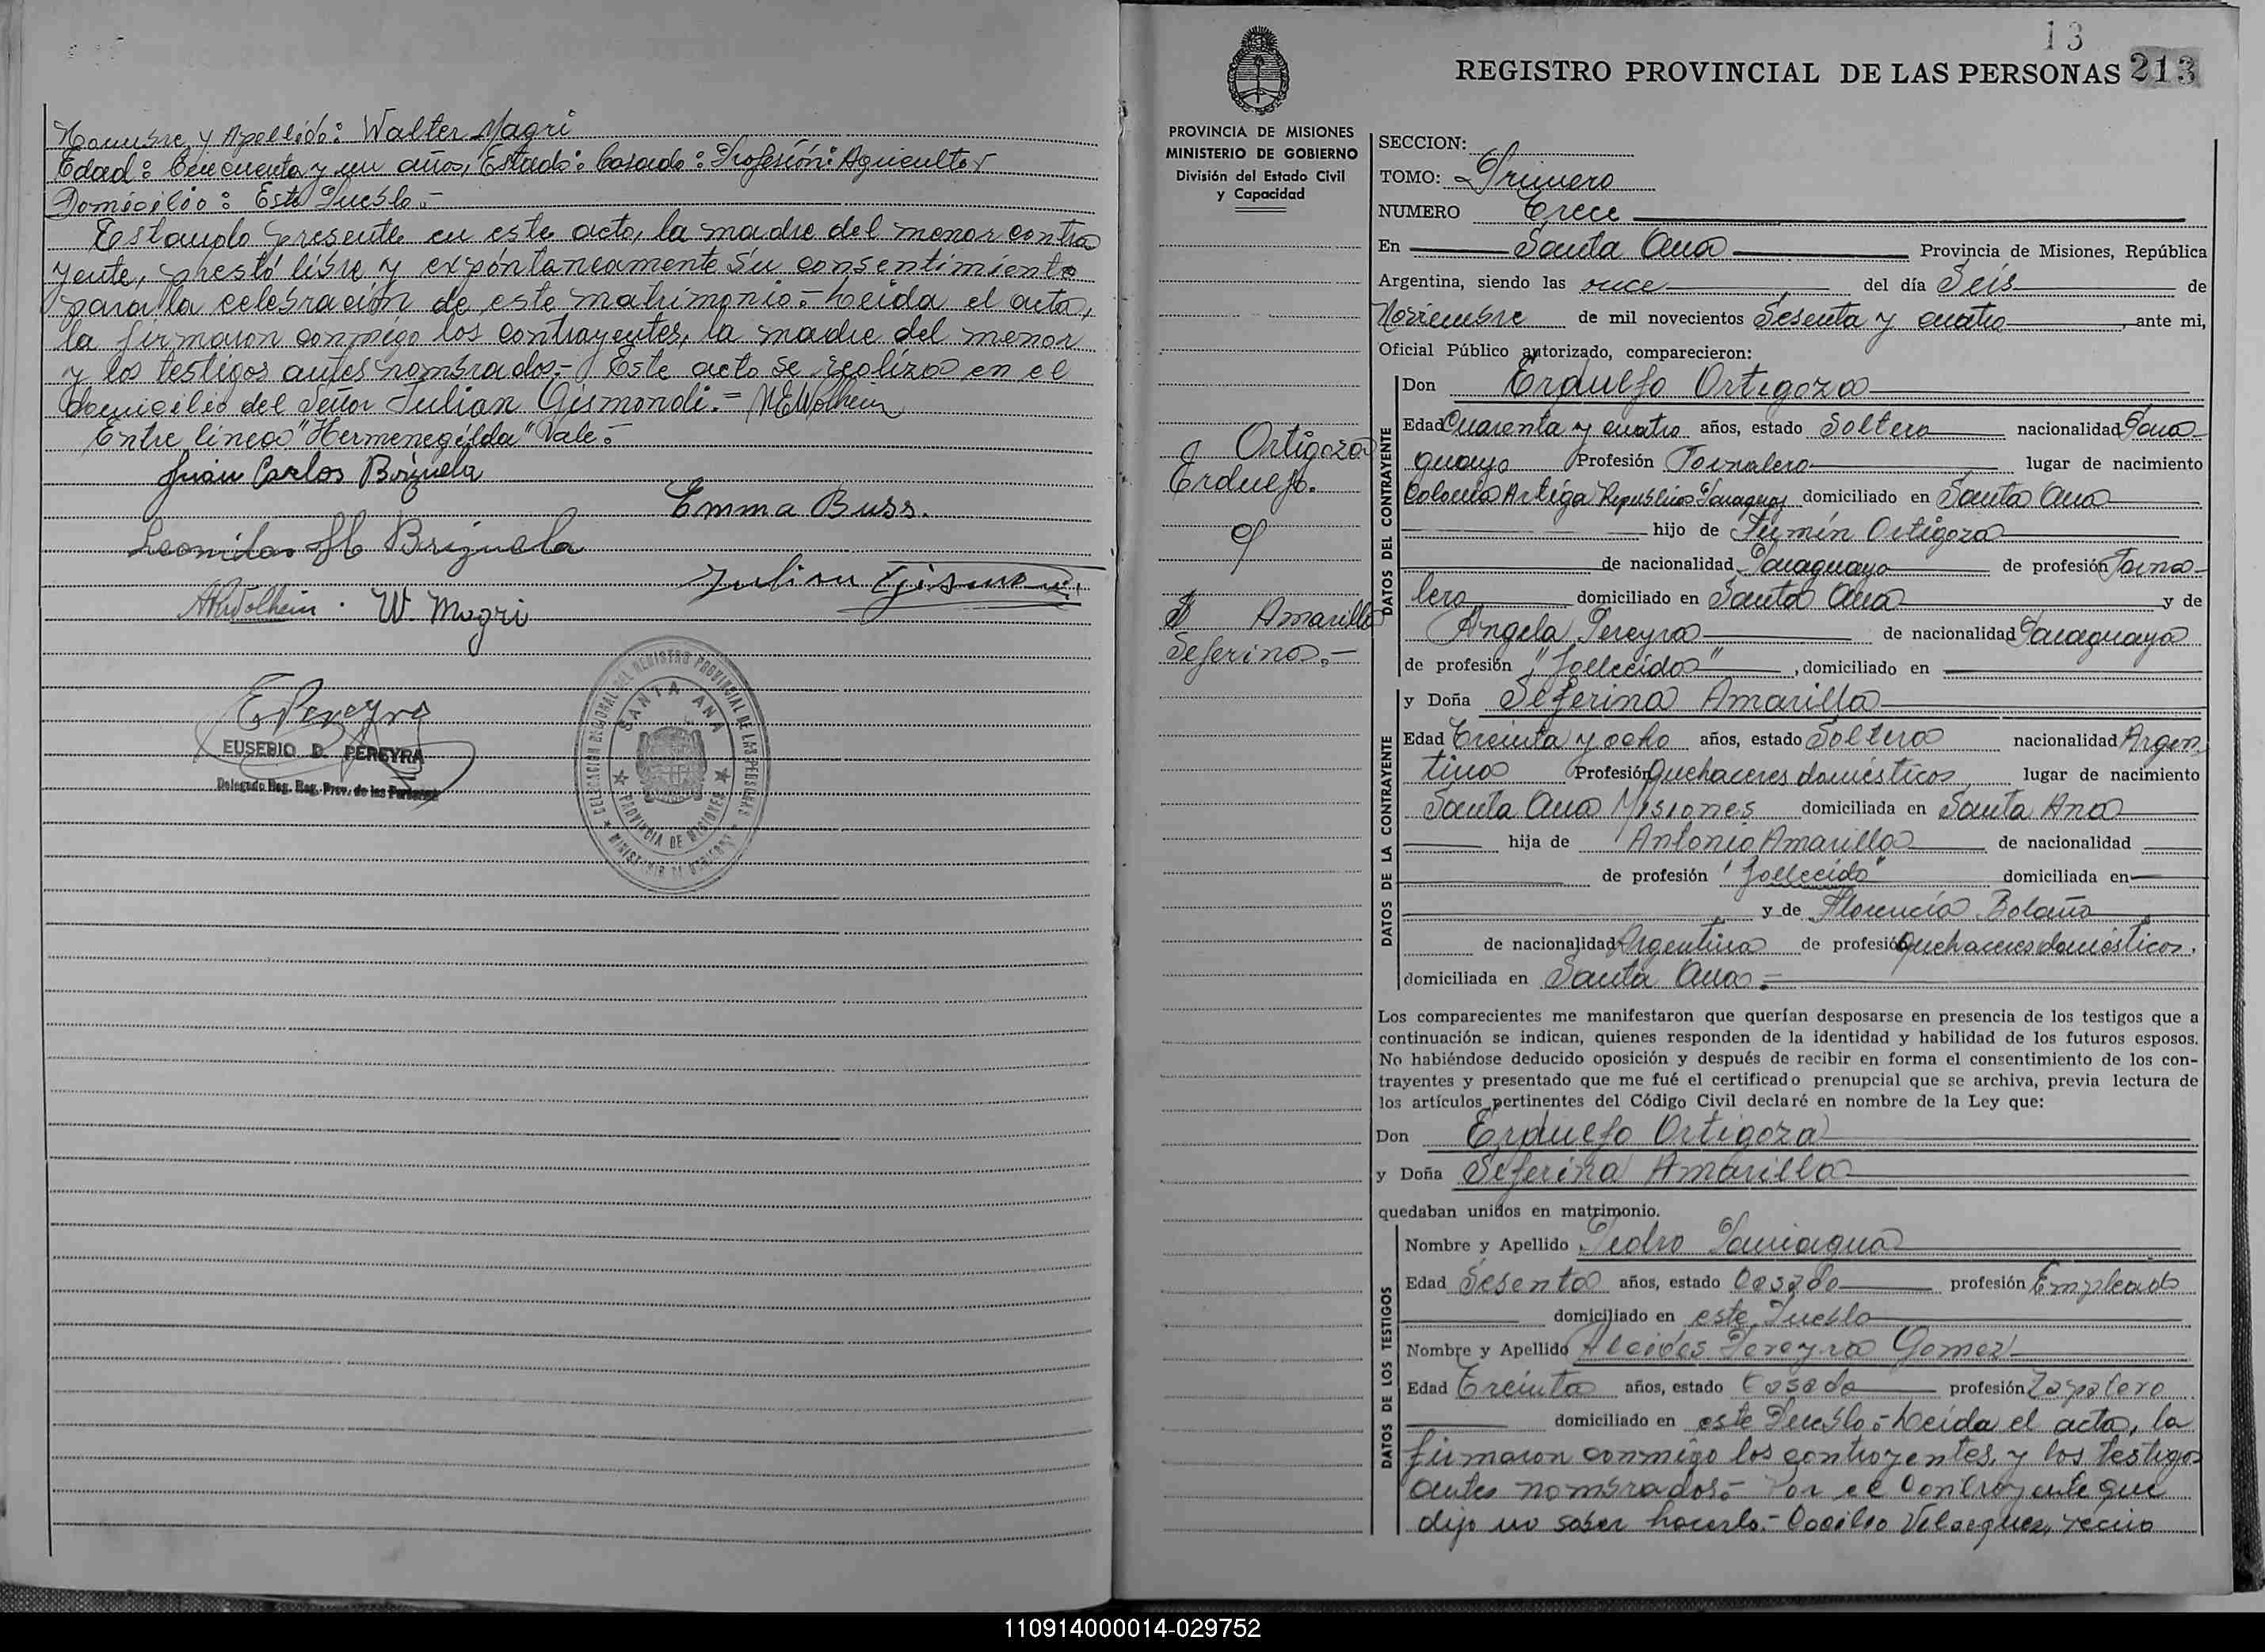 Nombre y Apellido: Walter Magri
Edad: Cincuenta y un años, Estado: Casado: Profesión: Agricultor
Domicilio: Este Pueblo.-
Estando presente en este acto, la madre del menor contra
yente, prestó libre y expóntaneamente su consentimiento
para la celebración de este matrimonio.- Leida el acta,
la firmaron conmigo los contrayentes, la madre del menor
y los testigos antes nombrados.- Este acto se realizo en el
domicilio del Señor Julian Gismondi.=
Entre linea "Hermenegilda" Vale.-
Juan Carlos Brizuela
Emma Buss.
Leonidas H Brizuela
Julian Gismondi
W. Magri
E Pereyra
EUSEBIO D. PEREYRA
Delegado Reg. Reg. Prov. de las Personas
DELEGACION REGIONAL DEL REGISTRO PROVINCIAL DE LAS PERSONAS
SANTA ANA
PROVINCIA DE MISIONES
MINISTERIO DE GOBIERNO
13
REGISTRO PROVINCIAL DE LAS PERSONAS 213
PROVINCIA DE MISIONES
MINISTERIO DE GOBIERNO
División del Estado Civil
y Capacidad
Ortigoza
Erduefo.
y
Amarilla
Seferina.-
SECCION:
TOMO: Primero
NUMERO Trece
En Santa Ana Provincia de Misiones, República
Argentina, siendo las once del día Seis de
Noviembre de mil novecientos Sesenta y cuatro, ante mi,
Oficial Público autorizado, comparecieron:
DATOS DEL CONTRAYENTE
Don Erduefo Ortigoza
Edad Cuarenta y cuatro años, estado Soltero nacionalidad Para-
guayo Profesión Jornalero lugar de nacimiento
Colonia Artiga Republica Paraguay domiciliado en Santa Ana
hijo de Fermín Ortigoza
de nacionalidad Paraguayo de profesión Jorna-
lero domiciliado en Santa Ana y de
Angela Pereyra de nacionalidad Paraguaya
de profesión "fallecida", domiciliado en
DATOS DE LA CONTRAYENTE
y Doña Seferina Amarilla
Edad Treinta y ocho años, estado Soltera nacionalidad Argen-
tina Profesión Quehaceres domésticos lugar de nacimiento
Santa Ana Misiones domiciliada en Santa Ana
hija de Antonio Amarilla de nacionalidad
de profesión "fallecido" domiciliada en
y de Florencia Bolaño
de nacionalidad Argentina de profesión Quehaceres domésticos.
domiciliada en Santa Ana.=
Los comparecientes me manifestaron que querían desposarse en presencia de los testigos que a
continuación se indican, quienes responden de la identidad y habilidad de los futuros esposos.
No habiéndose deducido oposición y después de recibir en forma el consentimiento de los con-
trayentes y presentado que me fué el certificado prenupcial que se archiva, previa lectura de
los artículos pertinentes del Código Civil declaré en nombre de la Ley que:
Don Erduefo Ortigoza
y Doña Seferina Amarilla
quedaban unidos en matrimonio.
DATOS DE LOS TESTIGOS
Nombre y Apellido Pedro Paniagua
Edad Sesenta años, estado Casado profesión Empleado
domiciliado en este Pueblo
Nombre y Apellido Alcides Pereyra Gomez
Edad Treinta años, estado Casado profesión Zapatero
domiciliado en este Pueblo.- Leida el acta, la
firmaron conmigo los contrayentes, y los testigos
antes nombrados.- Por el Contrayente que
dijo no saber hacerlo.- Cecilio Velasquez, vecino
110914000014-029752